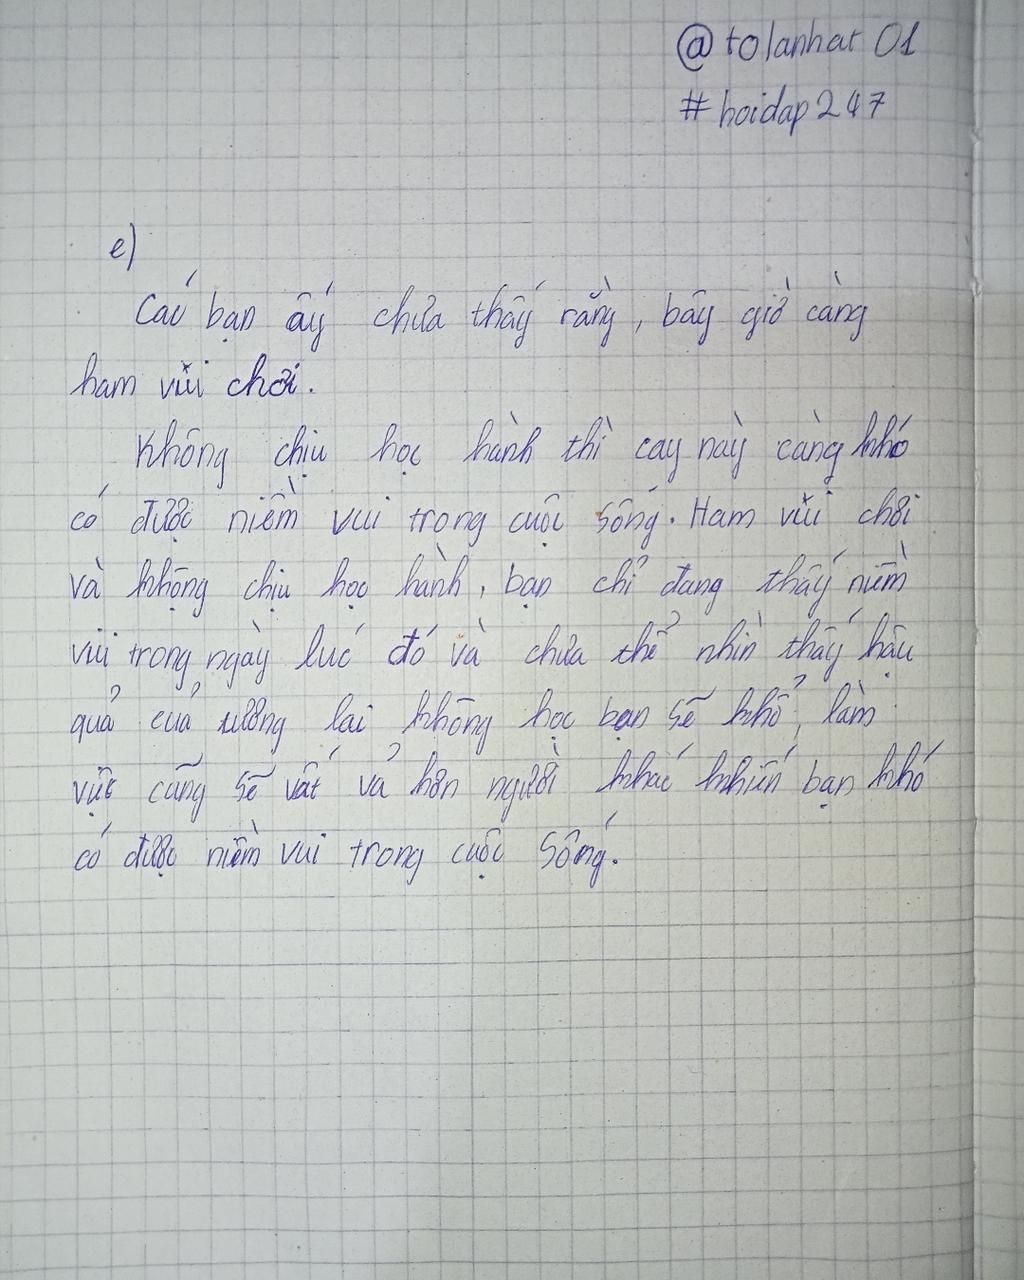 @tolanhat 01
#hoidap247
e)
Các bạn ấy chưa thấy rằng, bây giờ càng
ham vui chơi.
Không chịu học hành thì cay này càng khó
có được niềm vui trong cuộc sống. Ham vui chơi
và không chịu học hành, bạn chỉ đang thấy niềm
vui trong ngày lúc đó và chưa thể nhìn thấy hậu
quả của tương lai không học bạn sẽ khổ, làm
việc cũng sẽ vất vả hơn người khác khiến bạn khó
có được niềm vui trong cuộc sống.